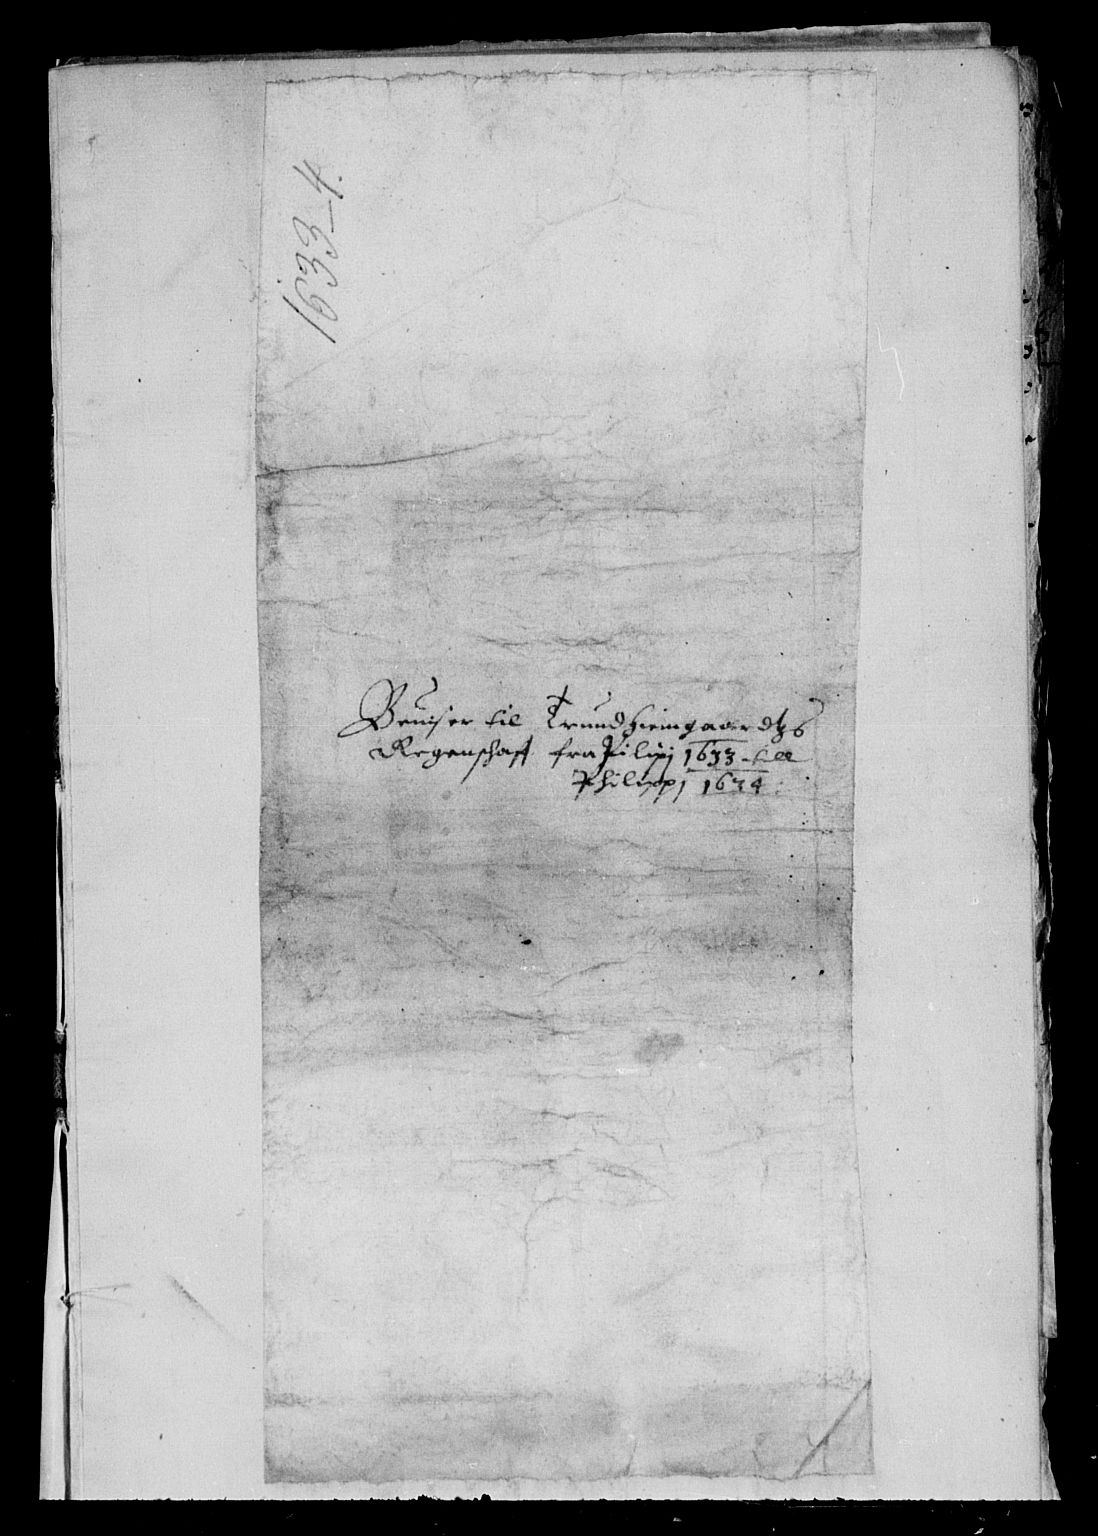 1633_4.
Beuiser til Trundhiemgaardtzs
Regenschaff fra Pilipj 1633 till
Philippj 1634